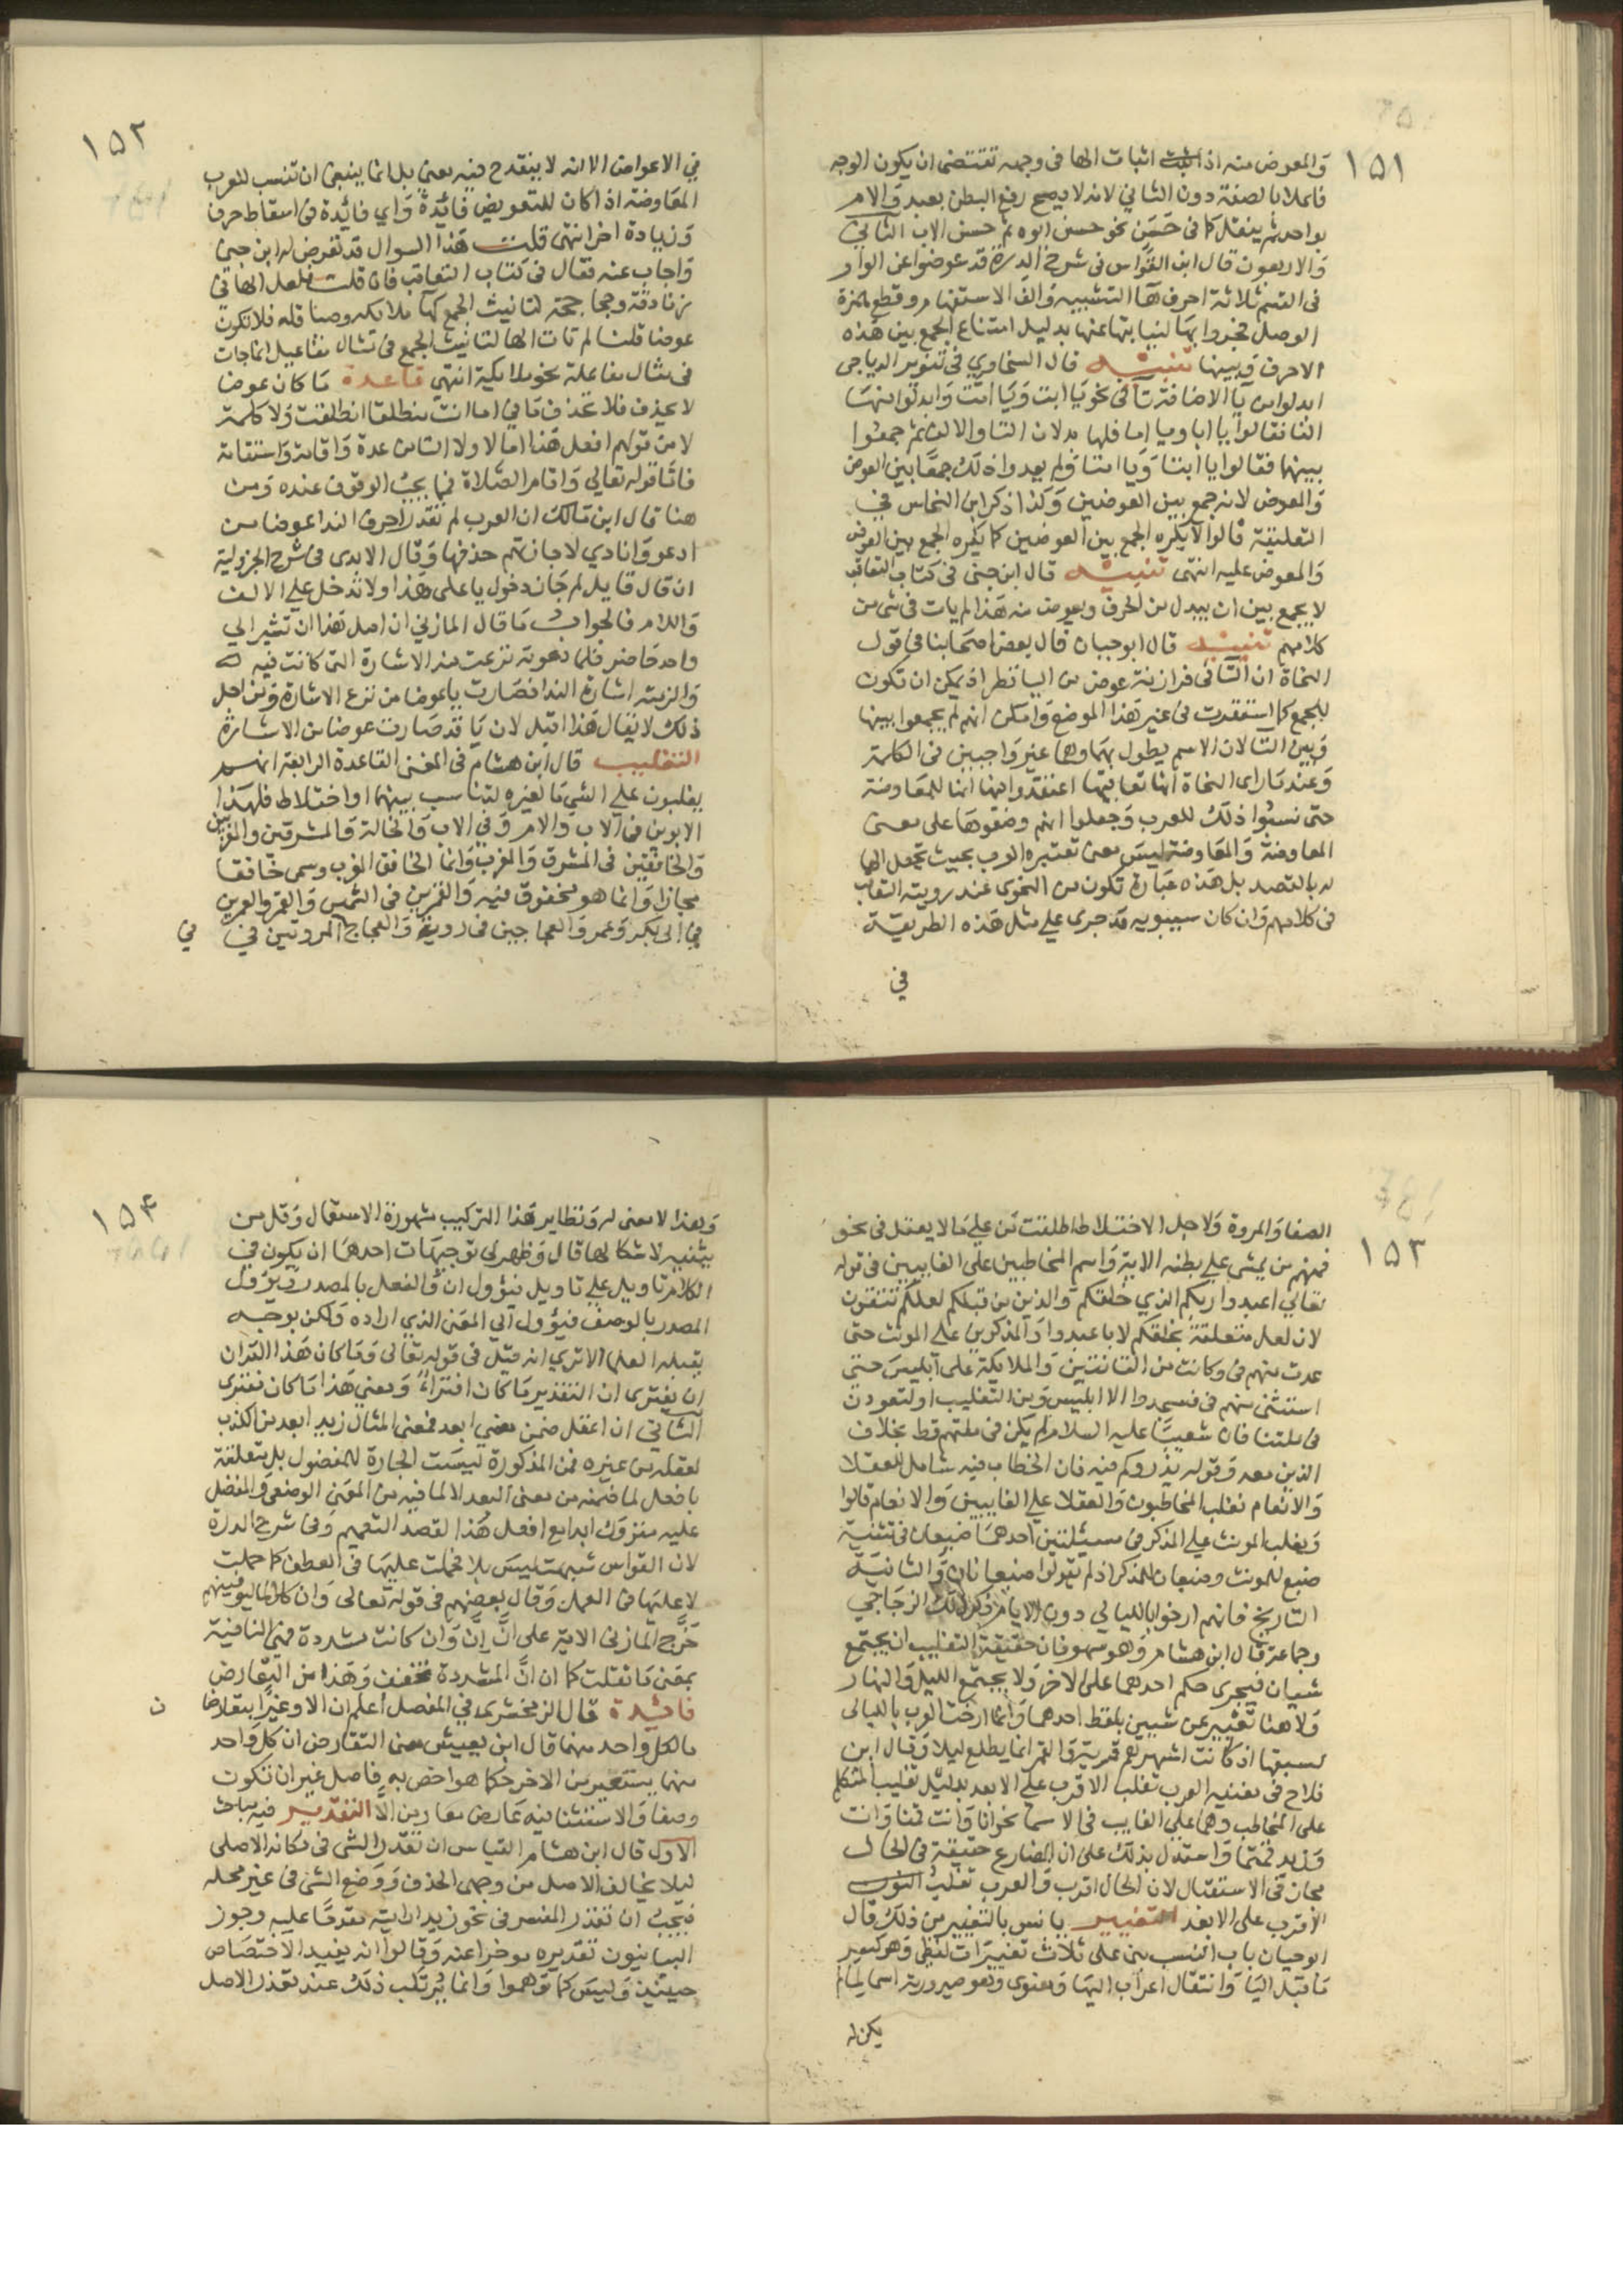 ١٥١
والمعوض منه اذ اثبات الها فى وجمه تقتضى ان يكون الوجه
فاعلا بالصفة دون الثاني لانه لا يصح رفع البطن بعبد والام
بواحد ثم ينقل كما فى حسن نحو حسن ابوه ثم حسن الاب الثاني
والاربعون قال ابن القواس فى شرح الدرة قد عوضوا عن الواو
فى القسم ثلاثة احرف ها التنبيه والف الاستفهام وقطع همزة
الوصل فجروا بها لنيابتها عنها بدليل امتناع الجمع بين هذه
الاحرف وبينها تنبيه قال السخاوي فى تنوير الدياجى
ابدلوا من يا الاضافة تا فى نحو يا ابت ويا امت وابدلوا منها
الفا فقالوا يا ابا ويا اما فلها بدلان التا والالف ثم جمعوا
بينهما فقالوا يا ابتا ويا امتا ولم يعدوا ذلك جمعا بين العوض
والمعوض لانه جمع بين العوضين وكذا ذكر ابن النحاس في
التعليقة قالوا لا يكره الجمع بين العوضين كما يكره الجمع بين العوض
والمعوض عليه انتهى تنبيه قال ابن جنى فى كتاب التعاقب
لا يجمع بين ان يبدل من الحرف ويعوض منه هذا لم يات فى شى من
كلامهم تنبيه قال ابو حيان قال بعض اصحابنا فى قول
النحاة ان التا فى فرازنة عوض من اليا نظر اذ يمكن ان تكون
للجمع كما استقرت فى غير هذا الموضع وامكن انهم لم يجمعوا بينها
وبين التا لان الاسم يطول بهما وهما غير واجبين فى الكلمة
وعندما راى النحاة انها تعاقبها اعتقدوا انها للمعاوضة
حتى نسبوا ذلك للعرب وجعلوا انهم وضعوها على معنى
المعاوضة والمعاوضة ليس معنى تعتبره العرب بحيث تجعل الها
له بالقصد بل هذه عبارة تكون من النحوى عند رويته التعاقب
فى كلامهم وان كان سيبويه قد جرى على مثل هذه الطريقة
في
١٥٢
في الاعواض الا انه لا ينقدح فيه معنى بل انما ينبغى ان تنسب للعرب
المعاوضة اذا كان للتعويض فائدة واي فائدة فى اسقاط حرف
وزيادة اخر انتهى قلت هذا السوال قد تعرض له ابن جنى
واجاب عنه فقال فى كتاب التعاقب فان قلت فلعل الها فى
زنادقة وجحاجحة لتانيث الجمع كها ملائكة وصياقلة فلا تكون
عوضا قلنا لم تات الها لتانيث الجمع فى مثال مفاعيل انما جات
فى مثال مفاعلة نحو ملائكة انتهى قاعدة ما كان عوضا
لا يحذف فلا تحذف ما فى اما انت منطلقا انطلقت ولا كلمة
لا من قولهم افعل هذا امالا ولا التا من عدة واقامة واستقامة
فاما قوله تعالي واقام الصلاة فمما يجب الوقوف عنده ومن
هنا قال ابن مالك ان العرب لم تقدر احرف الندا عوضا من
ادعو وانادي لاجازتهم حذفها وقال الابدى فى شرح الجزولية
ان قال قايل لم جاز دخول يا على هذا ولا تدخل على الالف
واللام فالجواب ما قال المازني ان اصل هذا ان تشير الي
واحد حاضر فلما دعوته نزعت منه الاشارة التى كانت فيه
والزمته اشارة الندا فصارت يا عوضا من نزع الاشارة ومن اجل
ذلك لا يقال هذا اقبل لان يا قد صارت عوضا من الاشارة
التغليب قال ابن هشام فى المغنى القاعدة الرابعة انهم
يغلبون على الشي ما لغيره لتناسب بينهما او اختلاط فلهذا
الابوين فى الاب والام وفي الاب والخالة والمشرقين والمغربين
والخافقين فى المشرق والمغرب وانما الخافق المغرب وسمى خافقا
مجازا وانما هو مخفوق فيه والقمرين فى الشمس والقمر والعمرين
فى ابى بكر وعمر والعجاجين فى روبة والعجاج المروتين في
في
١٥٣
الصفا والمروة ولاجل الاختلاط اطلقت من على ما لا يعقل فى نحو
فمنهم من يمشى على بطنه الاية واسم المخاطبين على الغايبين فى قوله
تعالي اعبدوا ربكم الذي خلقكم والذين من قبلكم لعلكم تتقون
لان لعل متعلقة بخلقكم لا باعبدوا والمذكرين على المونث حتى
عدت منهم فى وكانت من القانتين والملايكة على ابليس حتى
استثنى منهم فى فسجدوا الا ابليس ومن التغليب او لتعودن
فى ملتنا فان شعيبا عليه السلام لم يكن فى ملتهم قط بخلاف
الذين معه وقوله يذروكم فيه فان الخطاب فيه شامل للعقلا
والانعام فغلب المخاطبون والعقلا على الغايبين والانعام قالوا
ويغلب المونث على المذكر فى مسئلتين احدهما ضبعان فى تثنية
ضبع للمونث وضبعان للمذكر اذ لم يقولوا ضبعانان والثانية
التاريخ فانهم ارخوا بالليالي دون الايام ذكر ذلك الزجاجي
وجماعة قال ابن هشام وهو سهو فان حقيقة التغليب ان يجتمع
شيان فيجرى حكم احدهما على الاخر ولا يجتمع الليل والنهار
ولا هنا تعبير عن شيين بلفظ احدهما وانما ارخت العرب بالليالى
لسبقها اذ كانت اشهرهم قمرية والقمر انما يطلع ليلا وقال ابن
فلاح فى مغنيه العرب تغلب الاقرب على الابعد بدليل تغليب المتكلم
على المخاطب وهما على الغايب فى الاسما نحو انا وانت قمنا وانت
وزيد قمتما واستدل بذلك على ان المضارع حقيقة فى الحال
مجاز فى الاستقبال لان الحال اقرب والعرب تغلب
الاقرب على الابعد التغيير يانس بالتغيير من ذلك قال
ابو حيان باب النسب بنى على ثلاث تغييرات لفظى وهو كسر
ما قبل اليا وانتقال اعراب اليها ومعنوى وهو صيرورته اسما لما لم
يكن له
١٥٤
وبعذا لا معنى له ونظاير هذا التركيب مشهورة الاستعمال وقل من
يتنبه لاشكالها قال وظهر لى توجيهات احدها ان يكون في
الكلام تاويل على تاويل فيؤول ان والفعل بالمصدر ويؤول
المصدر بالوصف فيؤول الي المعنى الذي اراده ولكن بوجه
يقبله العلما الا تري انه قيل فى قوله تعالى وما كان هذا القران
ان يفترى ان التقدير ما كان افتراء ومعنى هذا ما كان مفترى
الثاني ان اعقل ضمن معنى ابعد فمعنى المثال زيد ابعد من الكذب
لعقله من غيره فمن المذكورة ليست الجارة للمفضول بل متعلقة
بافعل لما ضمنه من معنى البعد لا لما فيه من المعنى الوضعى والمفضل
عليه متروك ابدا مع افعل هذا لقصد التعميم وفى شرح الدرة
لان القواس شبهت ليس بلا فحملت عليها فى العطف كما حملت
لا عليها فى العمل وقال بعضهم فى قوله تعالى وان كلا لما ليوفينهم
خرج المازنى الاية على ان ان وان كانت مشددة فهى النافية
بمعنى ما ثقلت كما ان ان المشددة تخفف وهذا من التعارض
فائدة قال الزمخشرى في المفصل اعلم ان الا وغيرا يتقارضان
ما لكل واحد منهما قال ابن يعيش معنى التقارض ان كل واحد
منهما يستعير من الاخر حكما هو اخص به فاصل غير ان تكون
وصفا والاستثنا فيه عارض معار من الا التقدير فيه مباحث
الاول قال ابن هشام القياس ان تقدر الشى فى مكانه الاصلى
ليلا يخالف الاصل من وجهى الحذف ووضع الشى فى غير محله
فيجب ان تقدر المفسر فى نحو زيدا رايته مقدما عليه وجوز
البيانيون تقديره موخرا عنه وقالوا انه يفيد الاختصاص
حينئذ وليس كما توهموا وانما يرتكب ذلك عند تعذر الاصل